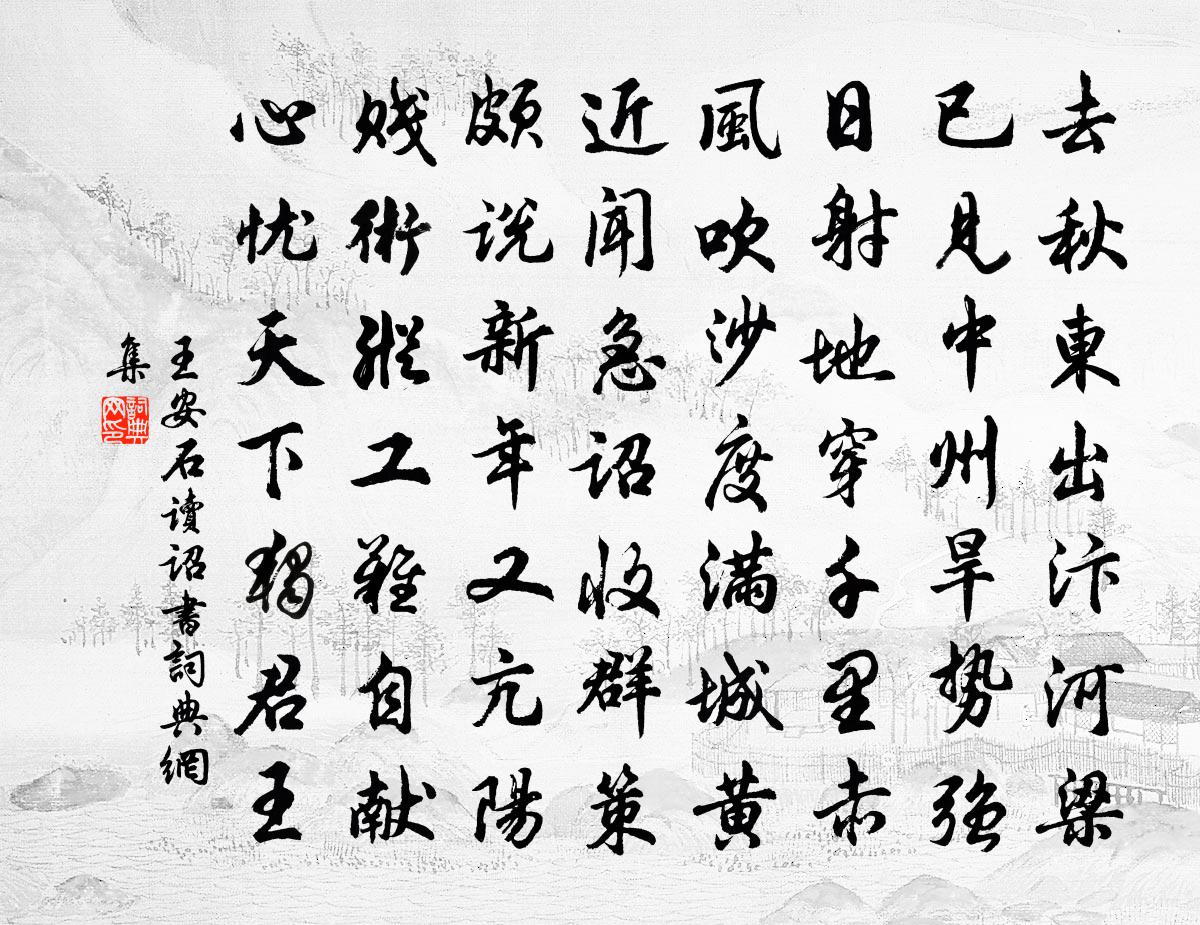 去秋東出汴河梁
已見中州旱勢強
日射地穿千里赤
風吹沙度滿城黄
近聞急詔收群策
頗説新年又亢陽
賤術縱工難自献
心忧天下獨君王
王安石讀詔書詞典網
集
詞典
网印